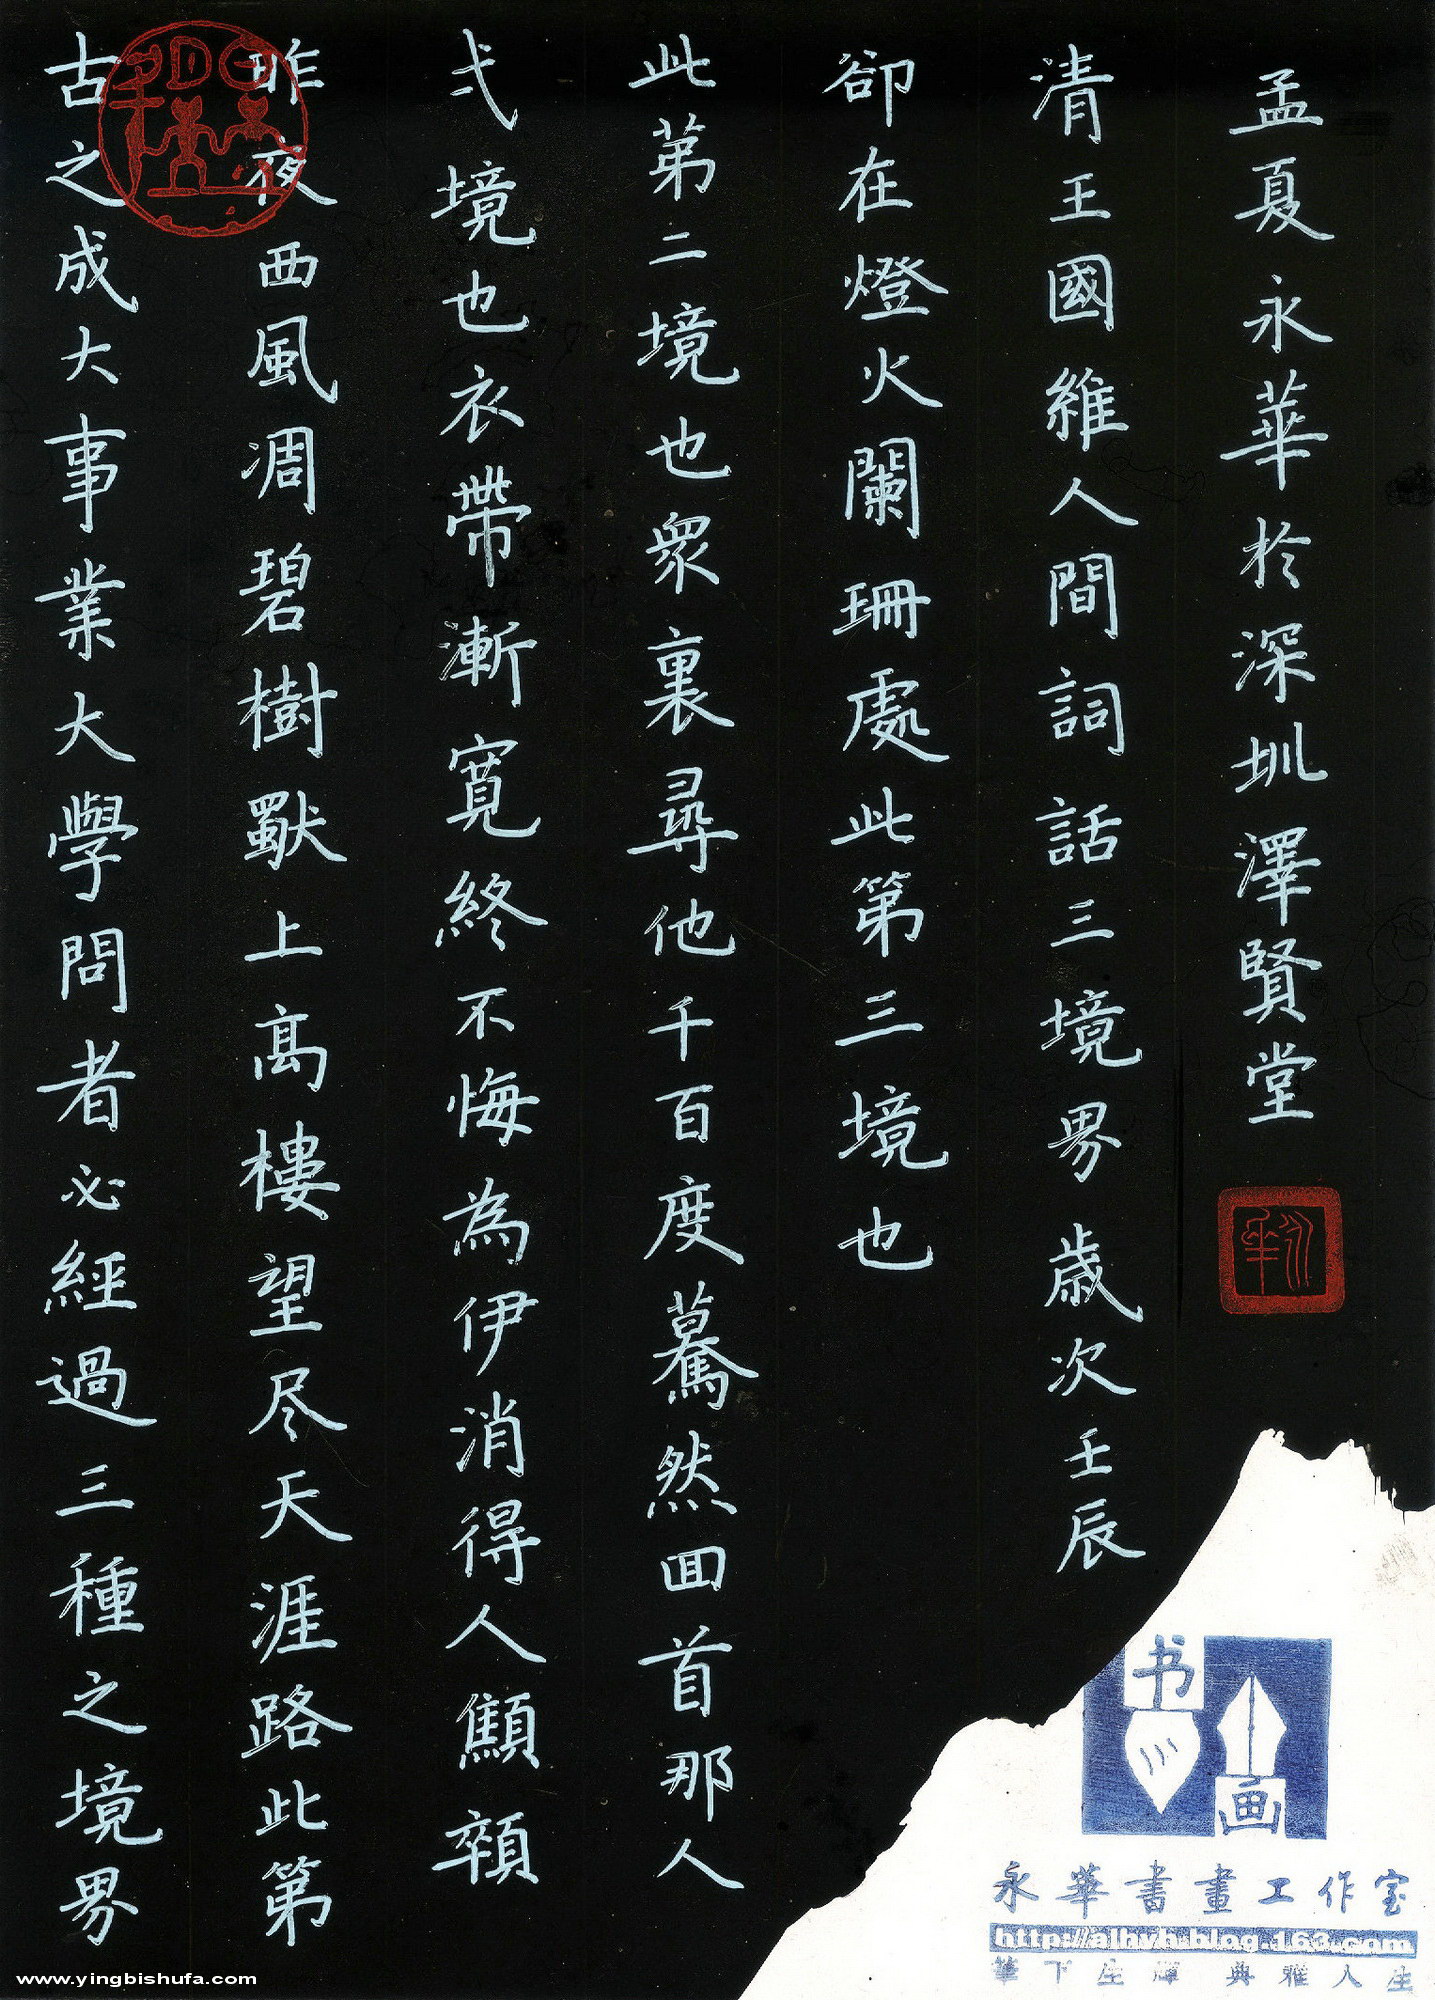 古之成大事業大學問者必經過三種之境界
昨夜西風凋碧樹獨上高樓望尽天涯路此第
弍境也衣帶漸寬終不悔為伊消得人顦顇
此第二境也眾裏尋他千百度驀然回首那人
卻在燈火闌珊處此第三境也
清王國維人間詞話三境界歲次壬辰
孟夏永華於深圳澤賢堂
永華
书
画
永華書畫工作室
http://alhyh.blog.163.com
筆下生輝 典雅人生
www.yingbishufa.com